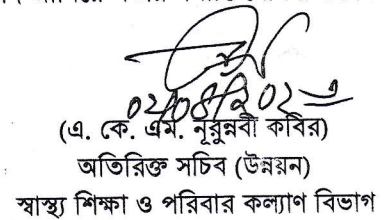 (এ. কে. এম. নূরুন্নবী কবির)
অতিরিক্ত সচিব (উন্নয়ন)
স্বাস্থ্য শিক্ষা ও পরিবার কল্যাণ বিভাগ